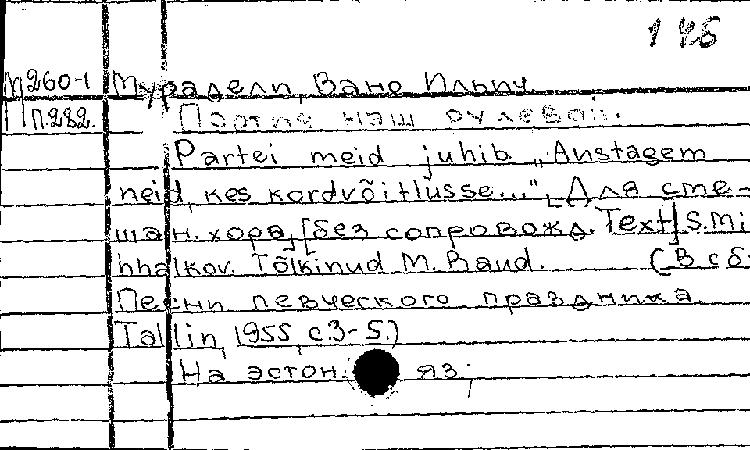 145
М260-1 Мурадели, Вано Ильич
П.282. Партия наш рулевой.
Partei meid juhib. „Anstagem
neid, kes kordvõitlusse..." [Для сме-
шан. хора, [без сопровожд. Text] S. Mi
hhalkov. Tõlkinud M. Raud. (В сб.
Песни певческого праздника
Tallin, 1955, с.3-5.)
На эстон. яз.